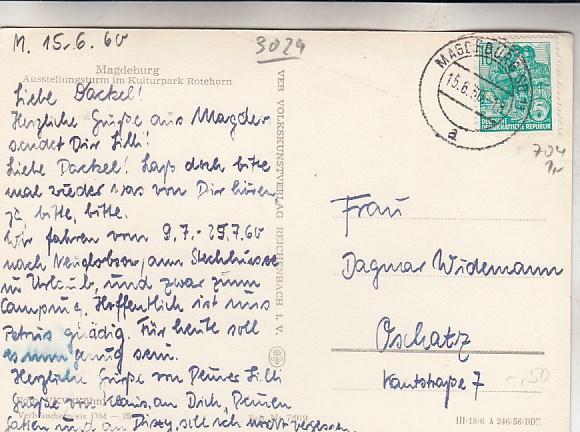 M. 15.6.60
3029
Magdeburg
Ausstellungsturm im Kulturpark Rotehorn
Liebe Dackel!
Herzliche Grüße aus Magde-
sendet Dir Lilli!
Liebe Dackel! Laß doch bitte
mal wieder was von Dir hören
ja, bitte, bitte.
Wir fahren vom 9.7.-25.7.60
nach am Stechlinsee
in Urlaub, und zwar zum
Camping. Hoffentlich ist uns
Petrus gnädig. Für heute soll
es nun genug sein.
Herzliche Grüße von Deiner Lilli
Grüße von Klaus, an Dich, Deinen
Gatten und an soll ich nicht vergessen.
Verbraucherpreis DM
VEB VOLKSKUNSTVERLAG REICHENBACH I. V.
MAGDEBURG
15.6.60
a
10
DEUTSCHE
DEMOKRATISCHE REPUBLIK
704
1,-
Frau
Dagmar Widemann
Oschatz
Kantstraße 7
-,50
III-18/6 A 246/58/DDR